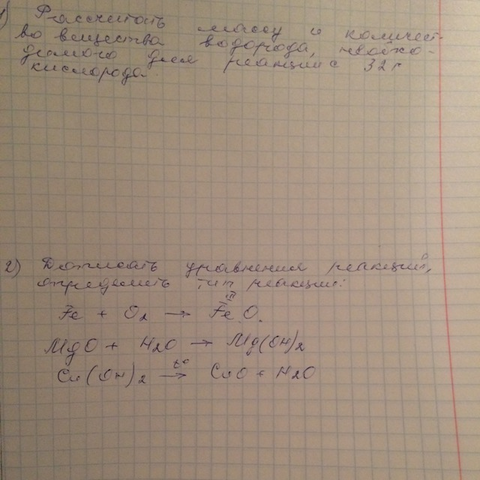 1) Рассчитать массу и количест-
во вещества водорода, необхо-
димого для реакции с 32 г
кислорода.
2) Дописать уравнения реакций,
определить тип реакции:
Fe + O₂ → Fe^III O.
MgO + H₂O → Mg(OH)₂
Cu(OH)₂ →^t° CuO + H₂O